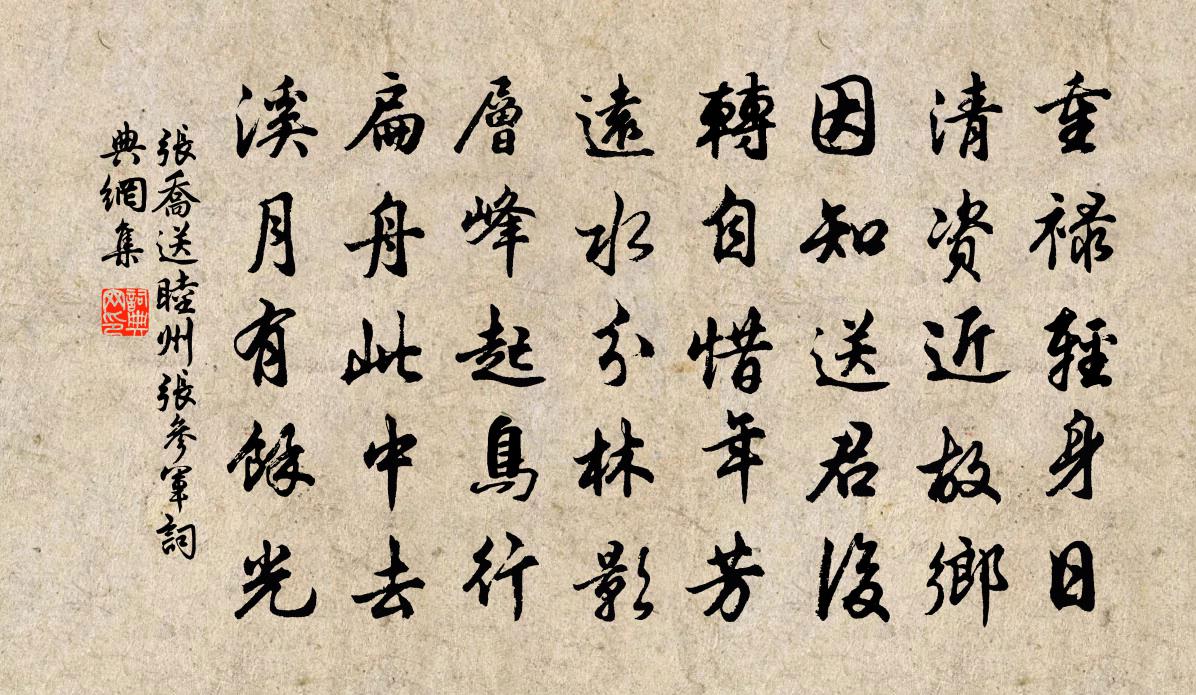 重祿輕身日
清資近故鄉
因知送君後
轉自惜年芳
遠水分林影
層峰起鳥行
扁舟此中去
溪月有餘光
張喬送睦州張參軍詞
典網集
詞典
网印